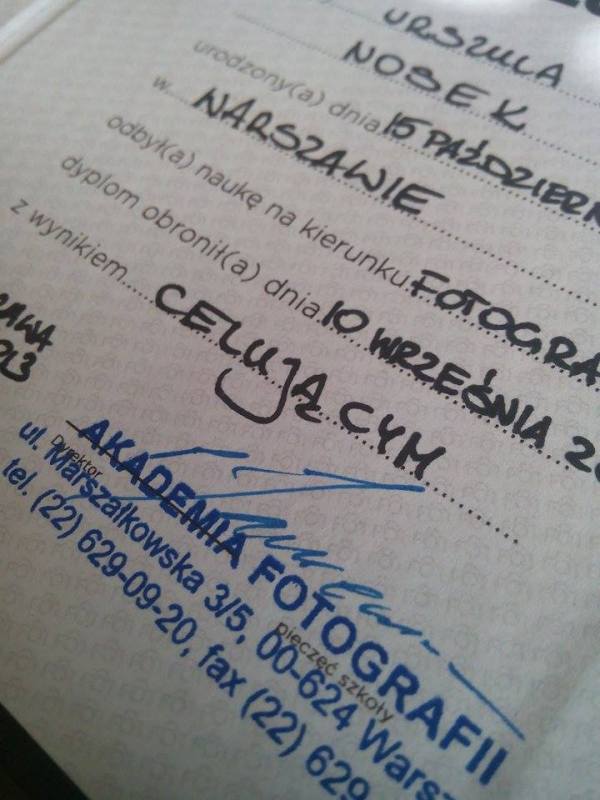 URSZULA
NOSEK
urodzony(a) dnia 15 PAŹDZIERN
w WARSZAWIE
odbył(a) naukę na kierunku: FOTOGRA
dyplom obronił(a) dnia 10 WRZEŚNIA 20
z wynikiem CELUJĄCYM
AWA
Dyrektor
AKADEMIA FOTOGRAFII
ul. Marszałkowska 3/5, 00-624 Warsz
tel. (22) 629-09-20, fax (22) 629
pieczęć szkoły